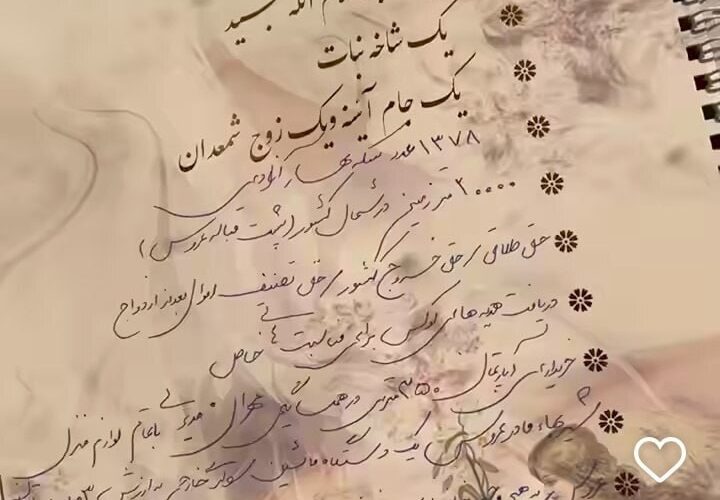 کلام الله مجید
یک شاخه نبات
یک جام آینه و یک زوج شمعدان
۱۳۷۸ عدد سکه بهار آزادی
۲۰۰۰۰ متر زمین در شمال کشور (پشت قباله عروس)
حق طلاق / حق خروج کشور / حق تصنیف اموال بعد از ازدواج
دریافت هدیه های لوکس برای مناسبت های خاص
خریداری آپارتمان ۳۵۰ متری در تهران با تمام لوازم منزل
شیربهاء مادر عروس یک دستگاه ماشین خارجی به ارزش